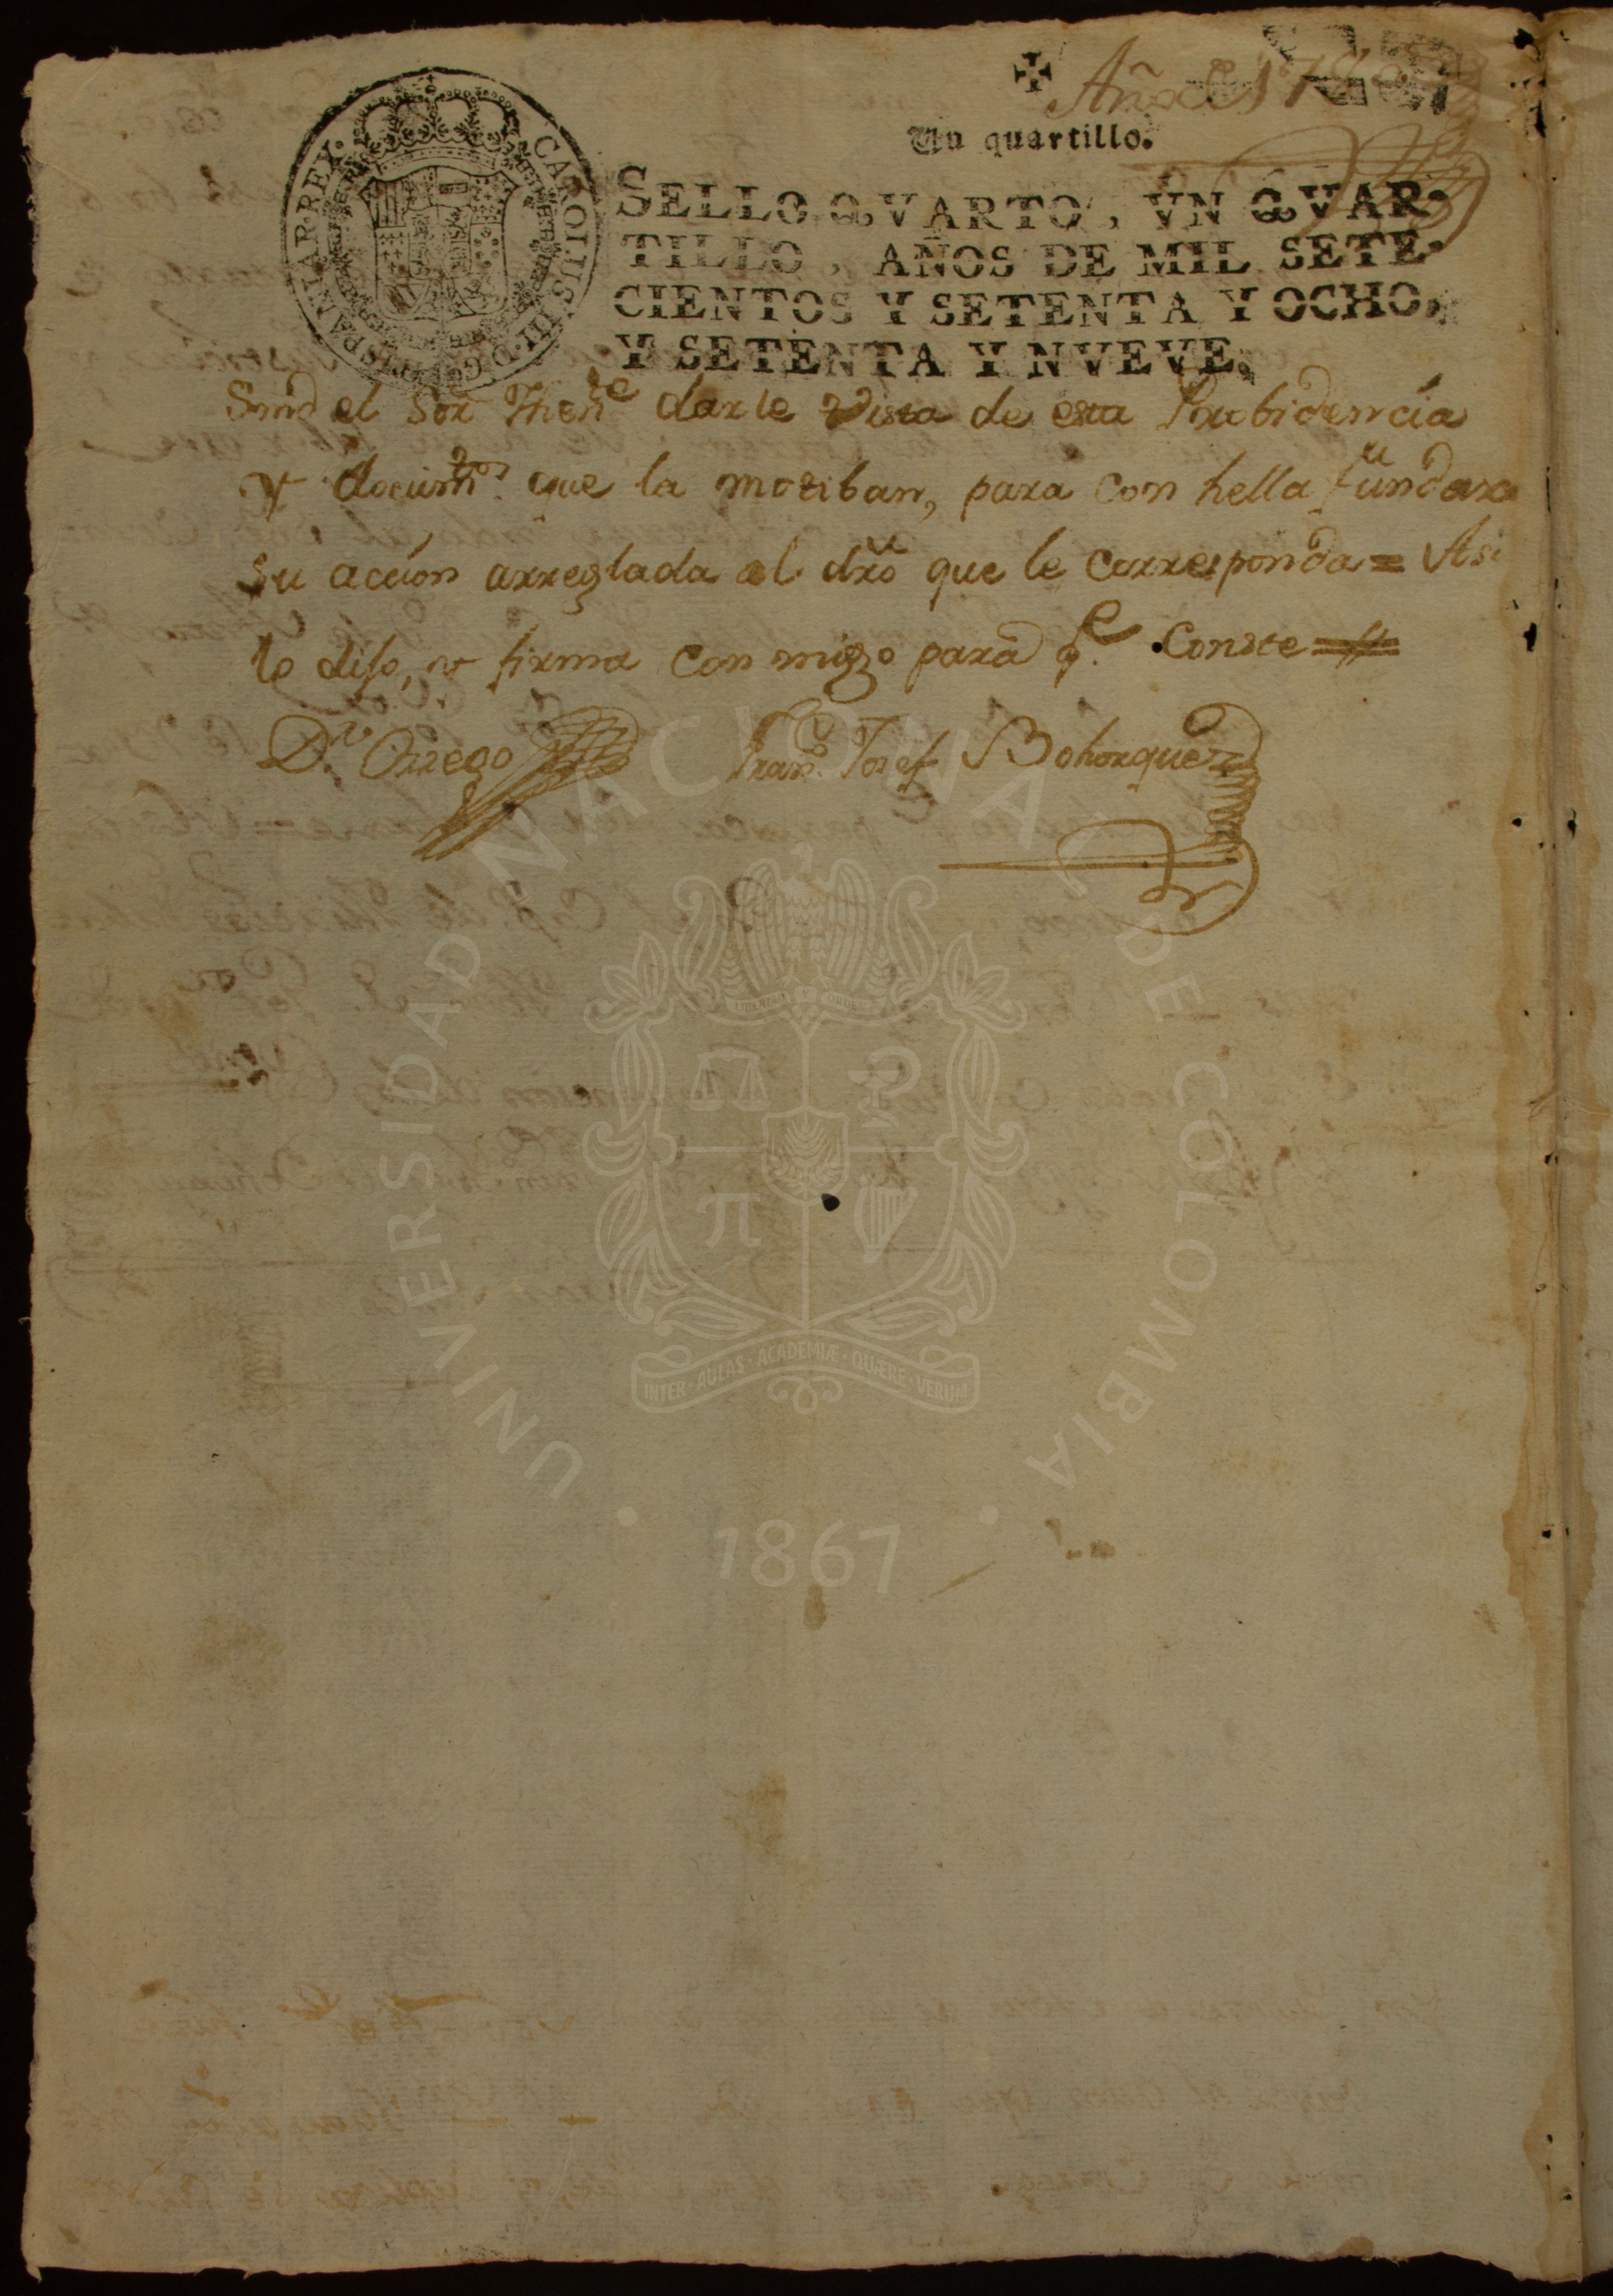 Año de 178
Un quartillo.
CAROLUS III D G HISPANIAR REX
SELLO QVARTO, VN QVAR-
TILLO, AÑOS DE MIL SETE-
CIENTOS Y SETENTA Y OCHO,
Y SETENTA Y NVEVE.
el Sor Thente darle Vista de esta Probidencia
y documtos que la motiban, para con hella fundar
su accion arreglada al dro que le corresponda = Asi
lo diso, y firma con migo para qe Conste =
Dr Orrego Franco Josef Bohorquez
UNIVERSIDAD NACIONAL DE COLOMBIA
LIBERTAD Y ORDEN
π
INTER · AULAS · ACADEMIÆ · QUÆRE · VERUM
1867